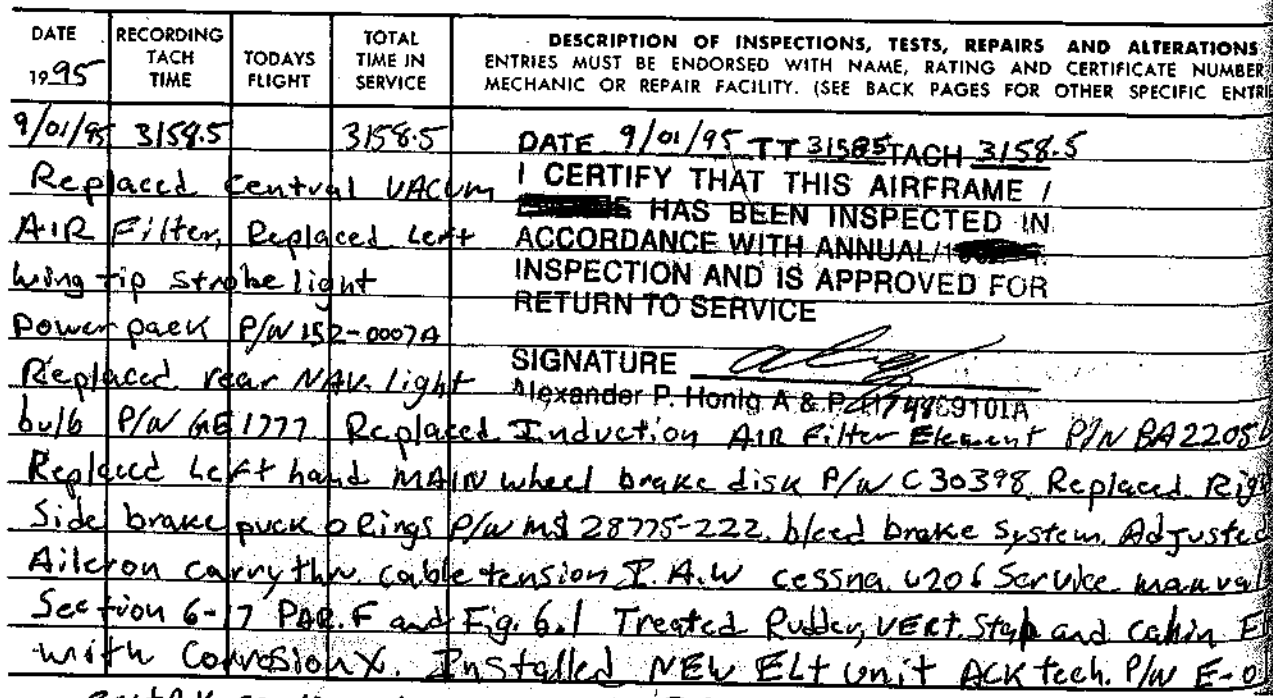 DATE RECORDING TODAYS TOTAL DESCRIPTION OF INSPECTIONS, TESTS, REPAIRS AND ALTERATIONS
1995 TACH FLIGHT TIME IN ENTRIES MUST BE ENDORSED WITH NAME, RATING AND CERTIFICATE NUMBER
TIME SERVICE MECHANIC OR REPAIR FACILITY. (SEE BACK PAGES FOR OTHER SPECIFIC ENTRIE
9/01/95 3158.5 3158.5
DATE 9/01/95 TT 31585 TACH 3158.5
I CERTIFY THAT THIS AIRFRAME /
HAS BEEN INSPECTED IN
ACCORDANCE WITH ANNUAL/
INSPECTION AND IS APPROVED FOR
RETURN TO SERVICE
SIGNATURE
Alexander P. Honig A & P
Replaced Central VACUM
AIR Filter, Replaced Left
wing tip strobe light
power pack P/N 152-0007A
Replaced rear NAV. light
bulb P/N GE 1777 Replaced Induction AIR Filter Element P/N BA2205
Replaced Left hand MAIN wheel brake disk P/N C30398 Replaced Righ
Side brake puck o Rings P/N MS 28775-222. bleed brake System. Adjusted
Aileron carry thru cable tension I.A.W cessna U206 Service manual
Section 6-17 PAR. F and Fig. 6.1 Treated Rudder, VERT. Stab and cabin
with CorrosionX. Installed NEW ELt unit ACK tech. P/N E-0